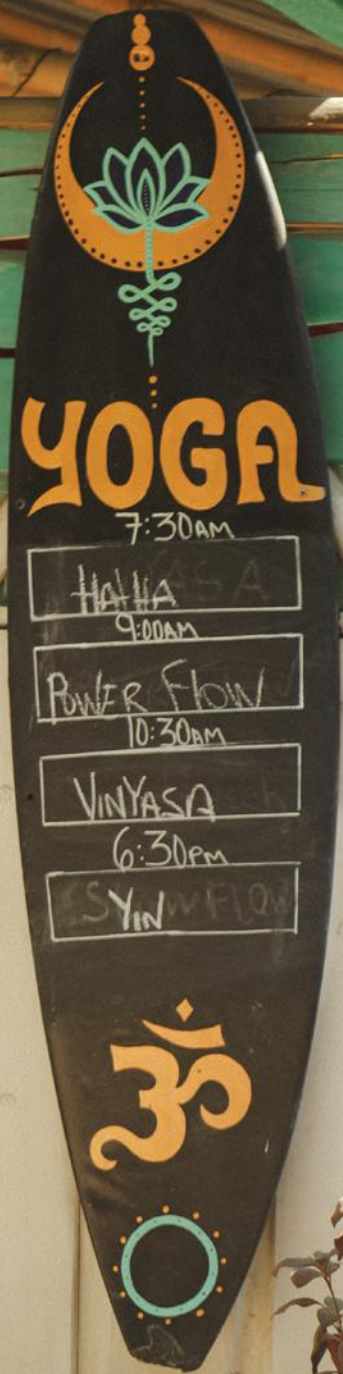 YOGA
7:30AM
HATHA
9:00AM
POWER FLOW
10:30AM
VINYASA
6:30PM
YIN
ॐ